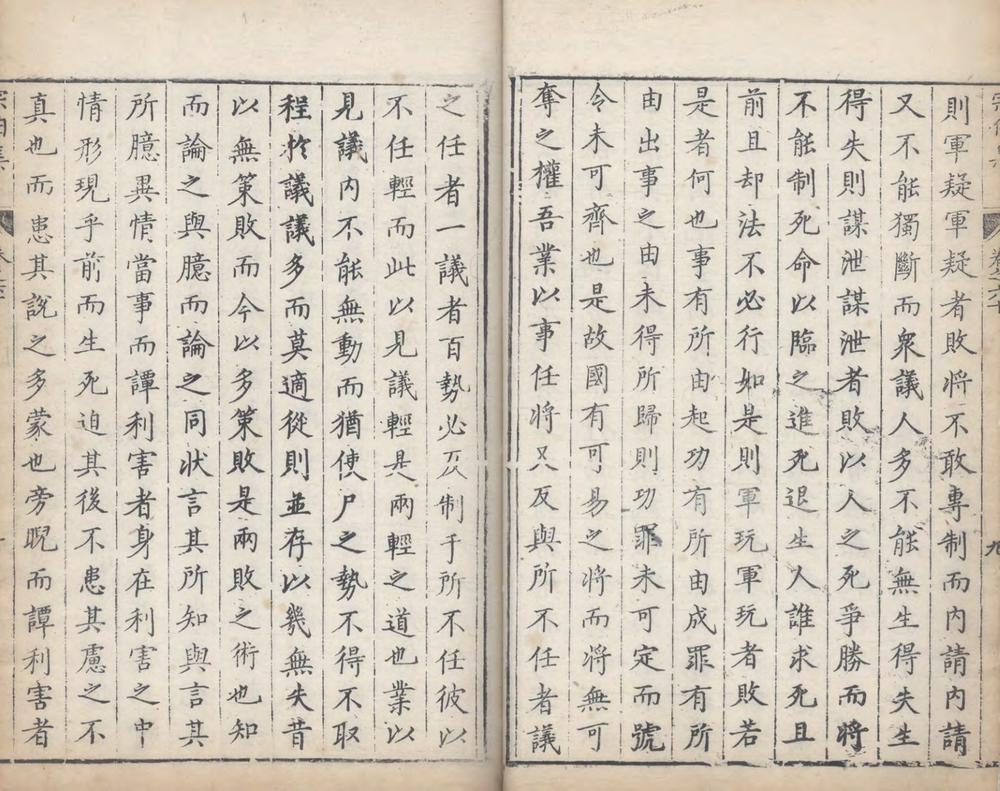 則軍疑軍疑者敗将不敢專制而内請内請
又不能獨斷而衆議人多不能無生得失生
得失則謀泄謀泄者敗以人之死爭勝而將
不能制死命以臨之進死退生人誰求死且
前且却法不必行如是則軍玩軍玩者敗若
是者何也事有所由起功有所由成罪有所
由出事之由未得所歸則功罪未可定而號
令未可齊也是故國有可易之将而将無可
奪之權吾業以事任将又反與所不任者議
之任者一議者百勢必反制于所不任彼以
不任輕而此以見議輕是兩輕之道也業以
見議内不能無動而猶使尸之勢不得不取
程於議議多而莫適從則並存以幾無失昔
以無策敗而今以多策敗是兩敗之術也知
而論之與臆而論之同状言其所知與言其
所臆異情當事而譚利害者身在利害之中
情形現乎前而生死迫其後不患其慮之不
真也而患其説之多蒙也旁睨而譚利害者